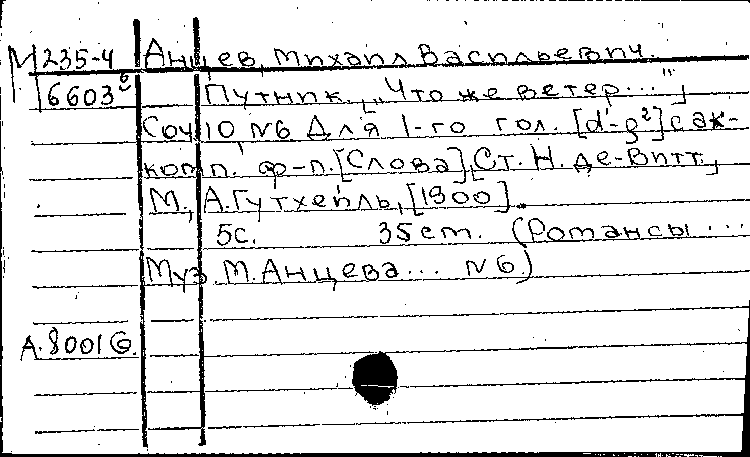 М235-4 Анцев, Михаил Васильевич.
6603 б Путник. „Что же ветер..."
Соч 10 №6 Для 1-го гол. [d'-g²] с ак-
комп. ф-п. [Слова] Ст. Н. де-Витт.,
М., А. Гутхейль, [1900].
5с. 35 cm. (Романсы ...
Муз. М. Анцева... №6)
А.8001 G.